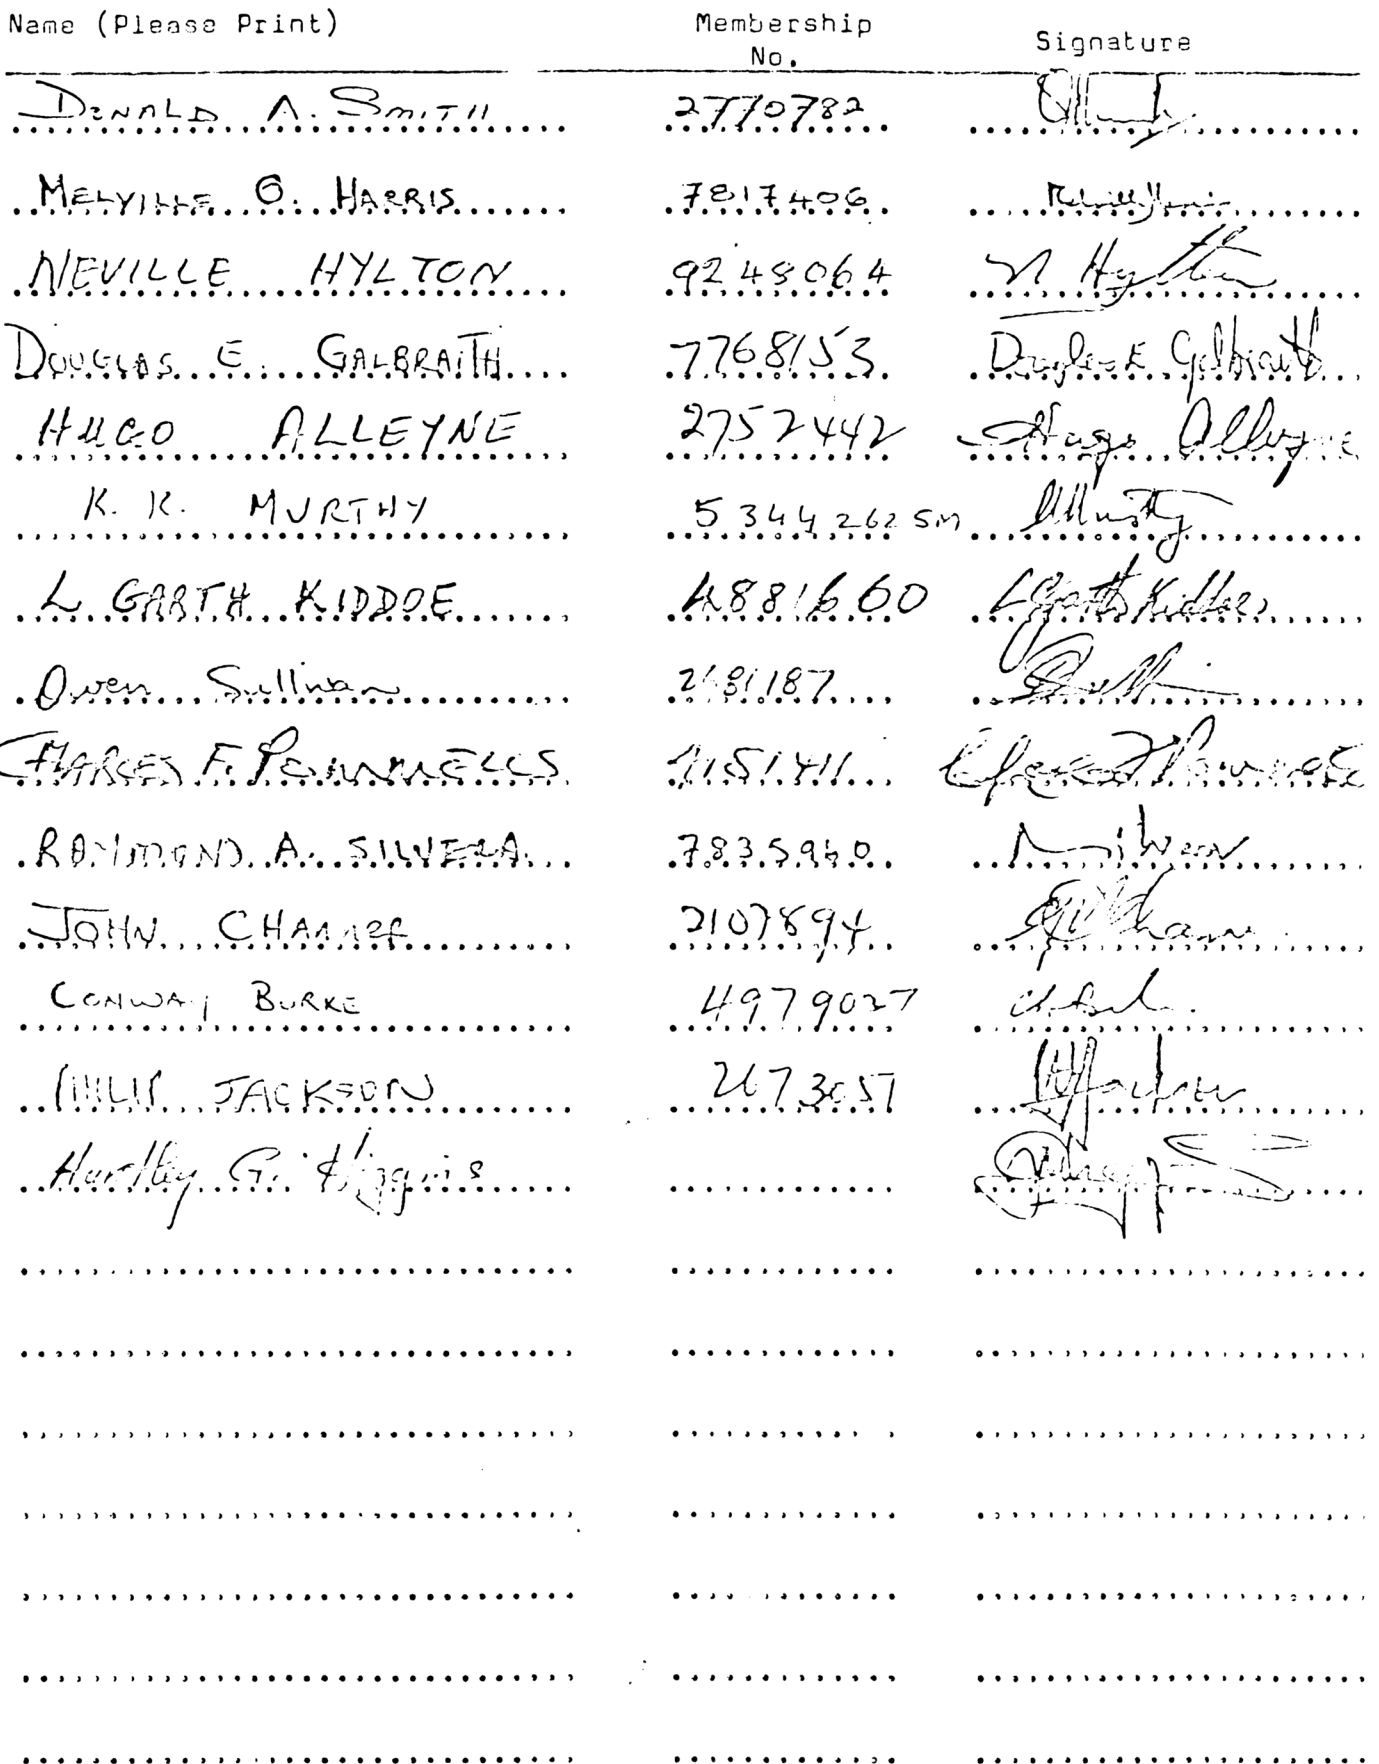 Name (Please Print) Membership No. Signature
DONALD A. SMITH 2770782
MELVILLE O. HARRIS 7817406 Melville Harris
NEVILLE HYLTON 9248064 N Hylton
DOUGLAS E. GALBRAITH 7768153 Douglas E Galbraith
HUGO ALLEYNE 2752442 Hugo Alleyne
K. K. MURTHY 5344262 SM Murthy
L. GARTH KIDDOE 4881660 L Garth Kiddoe
Owen Sullivan 2681187
CHARLES F. PEMMELLS
RAYMOND A. SILVERA 7835960
JOHN CHANNER 2107894
CONWAY BURKE 4979027
PHILIP JACKSON 2673057 Jackson
Huntley G. Higgins